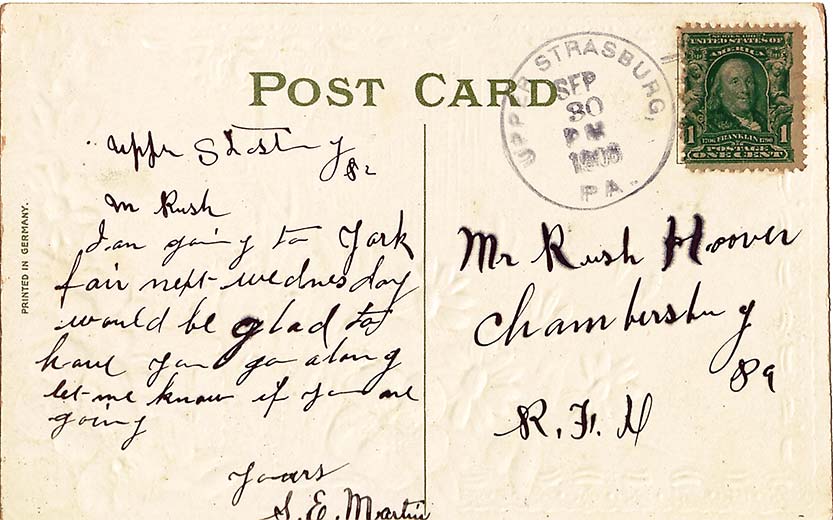 POST CARD
PRINTED IN GERMANY.
UPPER STRASBURG,
SEP
30
PM
PA.
SERIES 1902
UNITED STATES OF
AMERICA
1 1706 FRANKLIN 1790 1
POSTAGE
ONE CENT
upper
M Rush
I am going to York
fair next wednesday
would be glad to
have you go along
let me know if you are
going
yours
S. E. Martin
Mr Rush Hoover
Chambersburg
R. F. D